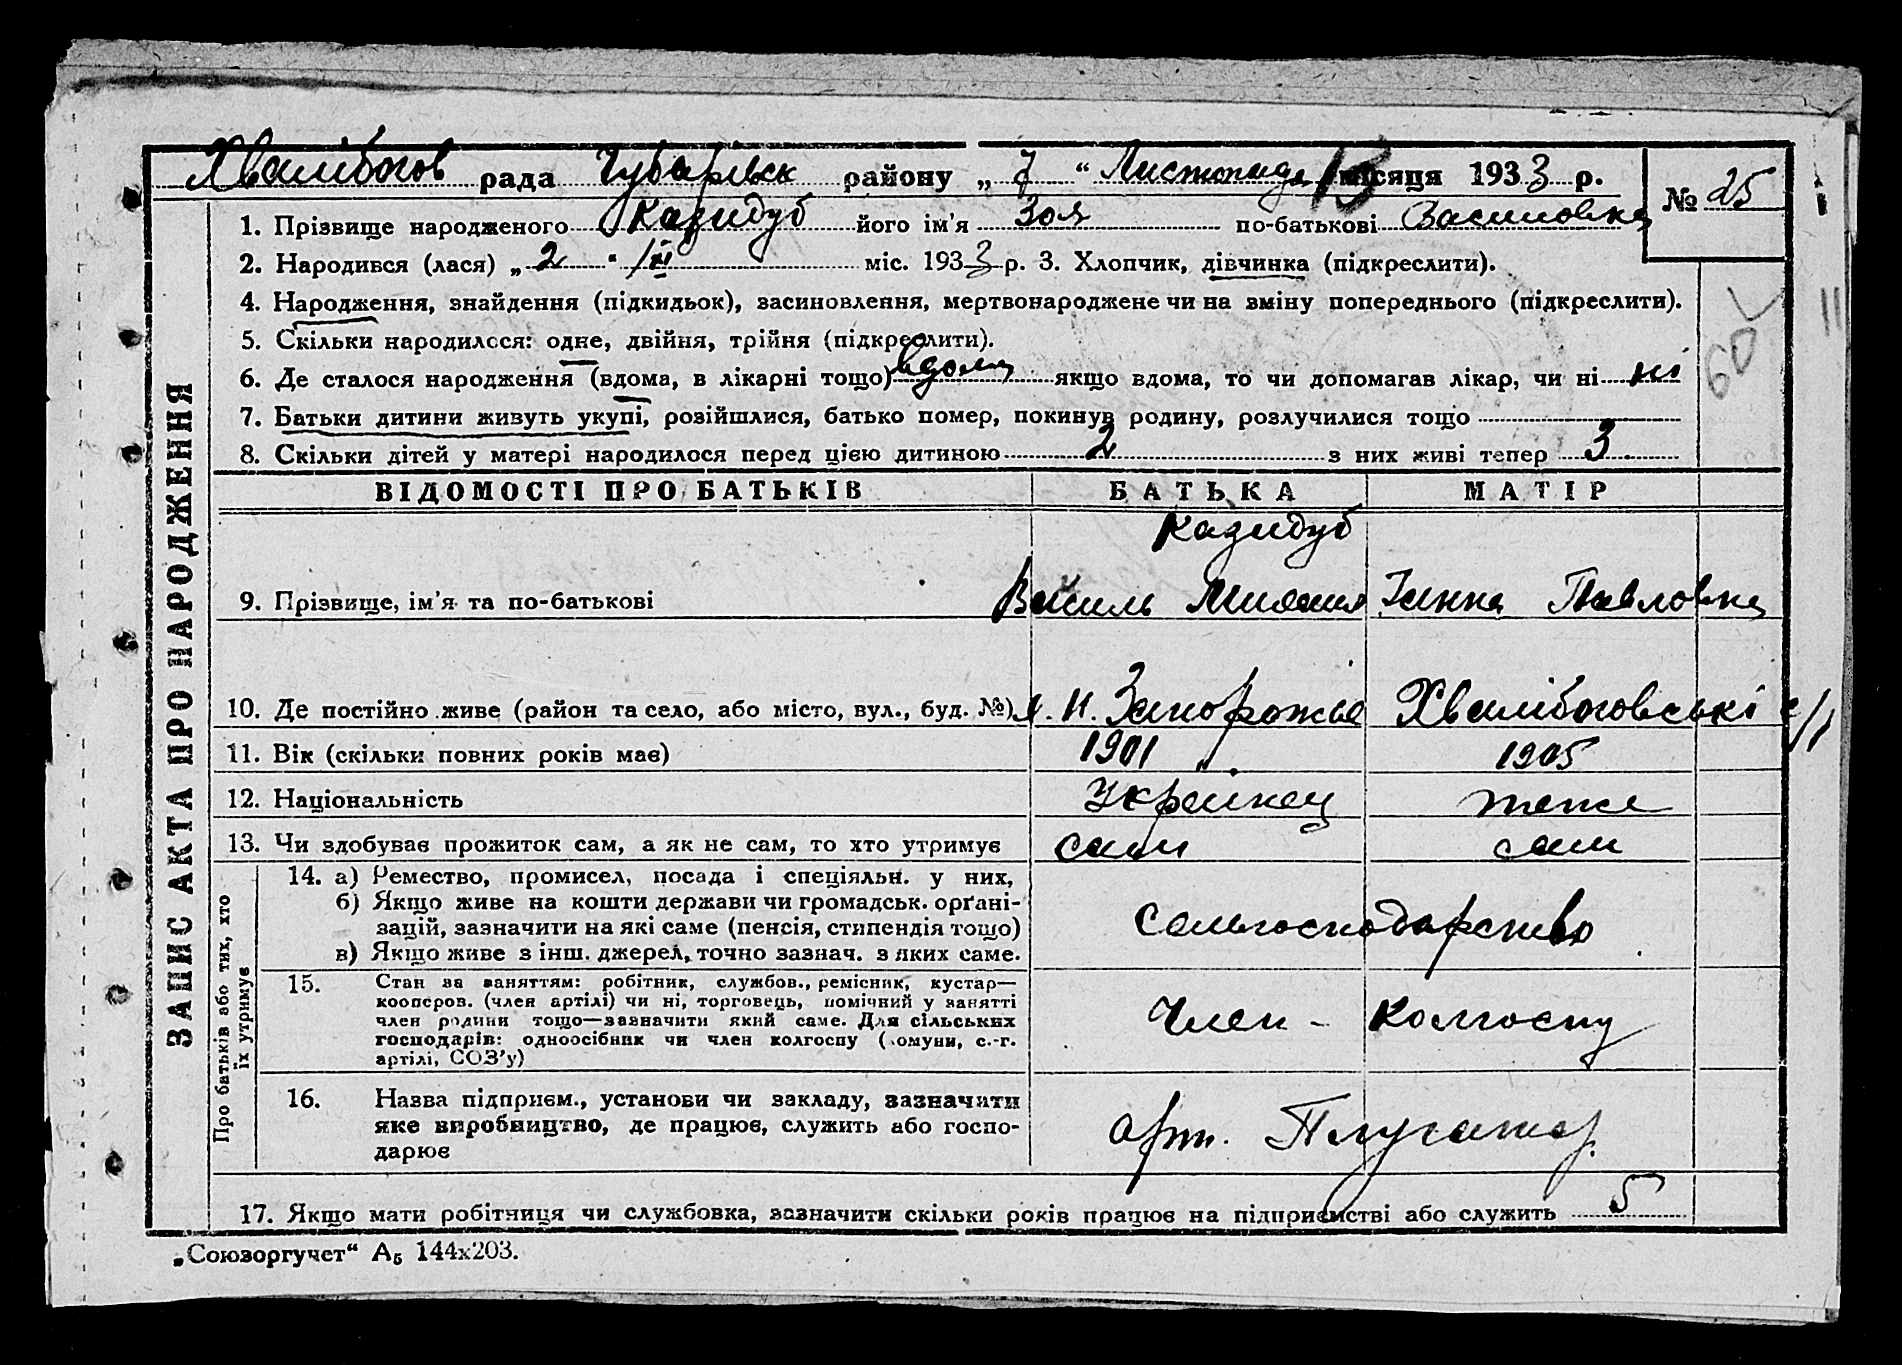 Хвалібогов рада Чубарівськ району „ 7 “ Листопада місяця 1933 р.
№ 25
1. Прізвище народженого Казидуб його ім'я Зоя по-батькові Василовна
2. Народився (лася) „ 2 “ XI міс. 1933 р. 3. Хлопчик, дівчинка (підкреслити).
4. Народження, знайдення (підкидьок), засиновлення, мертвонароджене чи на зміну попереднього (підкреслити).
5. Скільки народилося: одне, двійня, трійня (підкреслити).
6. Де сталося народження (вдома, в лікарні тощо) вдома якщо вдома, то чи допомагав лікар, чи ні ні
7. Батьки дитини живуть укупі, розійшлися, батько помер, покинув родину, розлучилися тощо
8. Скільки дітей у матері народилося перед цією дитиною 2 з них живі тепер 3
60
11
ЗАПИС АКТА ПРО НАРОДЖЕННЯ
ВІДОМОСТІ ПРО БАТЬКІВ БАТЬКА МАТІР
Казидуб
9. Прізвище, ім'я та по-батькові Василь Ганна Павловна
10. Де постійно живе (район та село, або місто, вул., буд. №) Запорожье Хвалібоговські с/р
11. Вік (скільки повних років має) 1901 1905
12. Національність Украинец теже
13. Чи здобуває прожиток сам, а як не сам, то хто утримує сам сам
Про батьків або тих, хто їх утримує
14. а) Ремество, промисел, посада і спеціяльн. у них,
б) Якщо живе на кошти держави чи громадськ. орґані-
зацій, зазначити на які саме (пенсія, стипендія тощо)
в) Якщо живе з інш. джерел, точно зазнач. з яких саме.
Сельгосподарство
15. Стан за заняттям: робітник, службов., ремісник, кустар—
кооперов. (член артілі) чи ні, торговець, помічний у занятті
член родини тощо—зазначити який саме. Для сільських
господарів: одноосібник чи член колгоспу (комуни, с.-г.
артілі, СОЗ'у)
Член - Колгоспу
16. Назва підприєм., установи чи закладу, зазначити
яке виробництво, де працює, служить або госпо-
дарює
Арт. Плугатар.
17. Якщо мати робітниця чи службовка, зазначити скільки років працює на підприємстві або служить 5
„Союзоргучет“ А5 144х203.